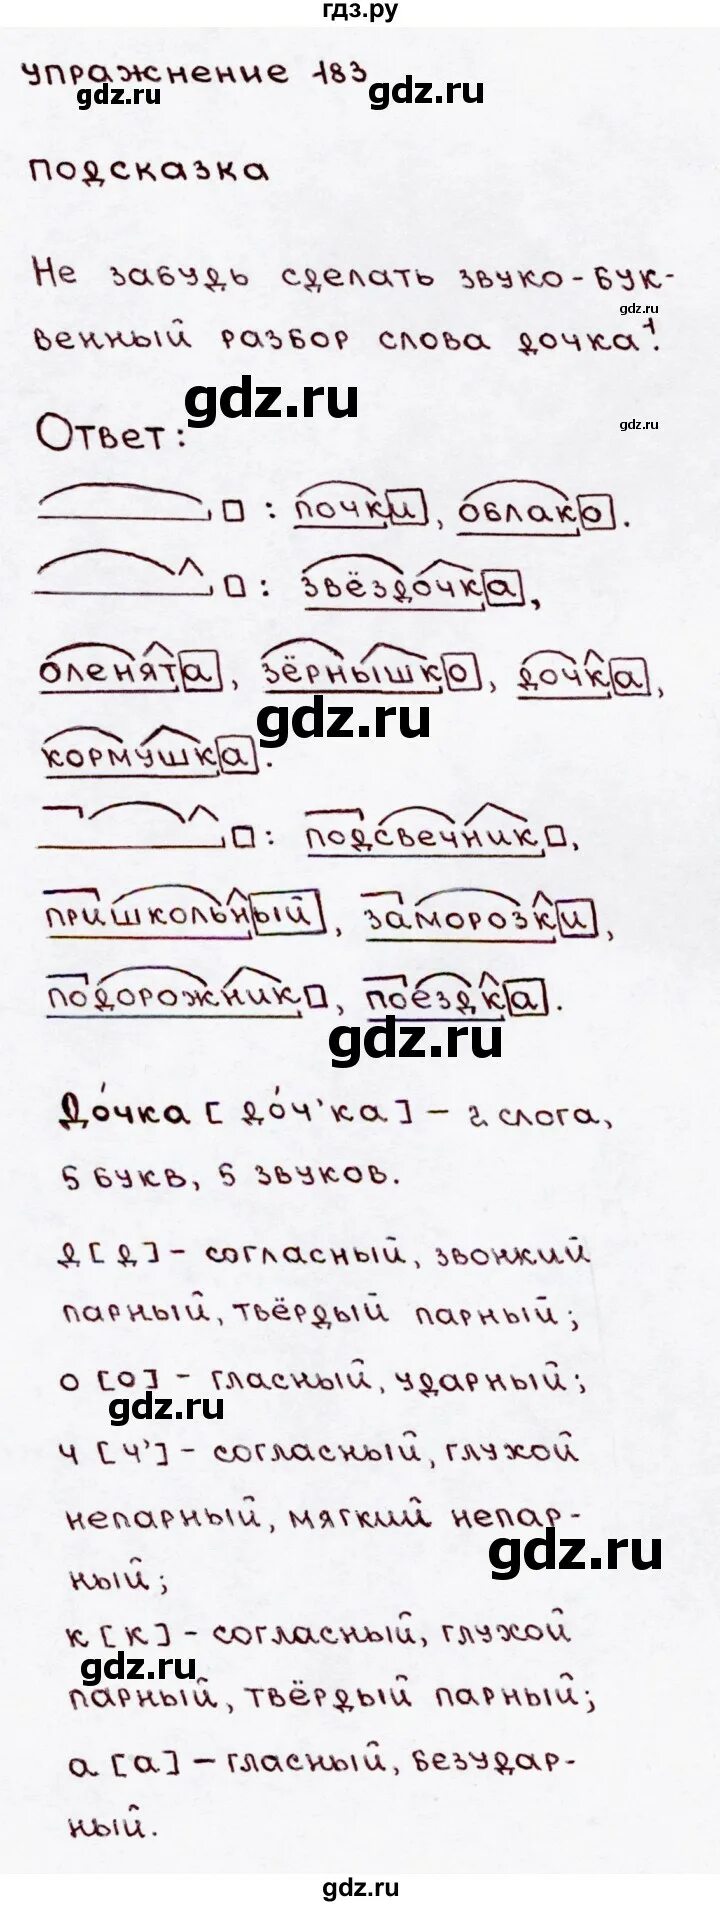 гдз.ру
упражнение 183
gdz.ru
gdz.ru
подсказка
Не забудь сделать звуко-бук-
gdz.ru
венный разбор слова дочка¹.
gdz.ru
Ответ:
gdz.ru
: почки, облако.
: звёздочка,
оленята, зёрнышко, дочка,
gdz.ru
кормушка.
: подсвечник,
пришкольный, заморозки,
подорожник, поездка.
gdz.ru
До́чка [до́ч'ка] – 2 слога,
5 букв, 5 звуков.
д [д] – согласный, звонкий
парный, твёрдый парный;
о [о] – гласный, ударный;
gdz.ru
ч [ч'] – согласный, глухой
непарный, мягкий непар-
gdz.ru
ный;
к [к] – согласный, глухой
gdz.ru
парный, твёрдый парный;
а [а] – гласный, безудар-
ный.
gdz.ru